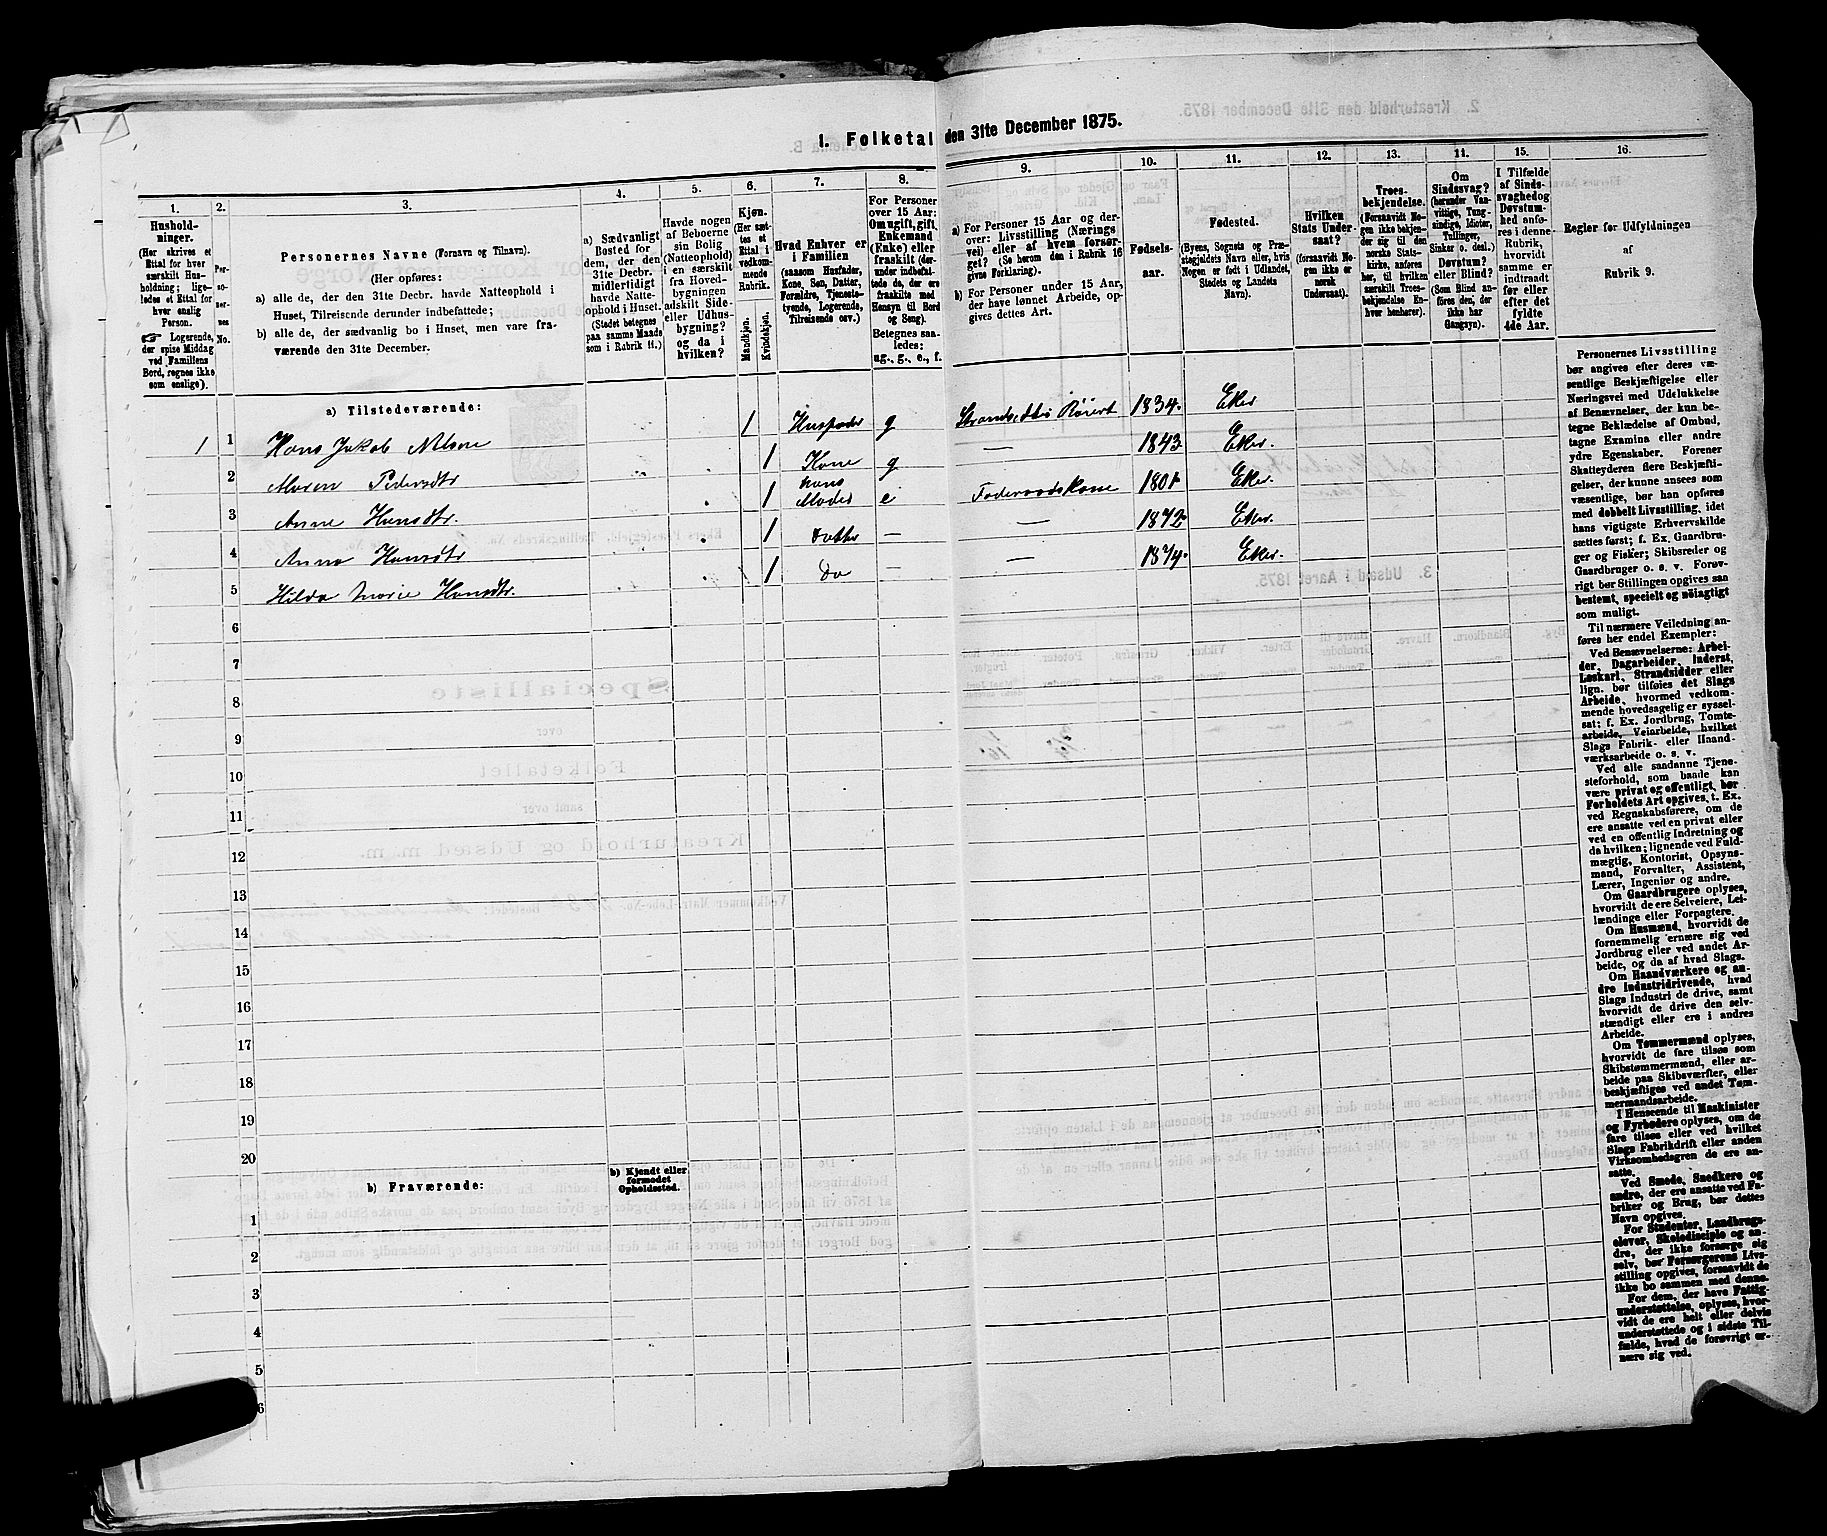 1. Folketal den 31te December 1875.
1.
2.
3.
4.
5.
6.
7.
8.
9.
10.
11.
12.
13.
14.
15.
16.
Husholdninger.
(Her skrives et Ettal for hver særskilt Husholdning; ligeledes et Ettal for hver enslig Person.
☞ Logerende, der spise Middag ved Familiens Bord, regnes ikke som enslige).
Personernes No.
Personernes Navne (Fornavn og Tilnavn).
(Her opføres:
a) alle de, der den 31te Decbr. havde Natteophold i Huset, Tilreisende derunder indbefattede;
b) alle de, der sædvanlig bo i Huset, men vare fraværende den 31te December.
a) Sædvanligt Bosted for dem, der den 31te Decbr. midlertidigt havde Natteophold i Huset.
(Stedet betegnes paa samme Maade som i Rubrik 11.)
Havde nogen af Beboerne sin Bolig (Natteophold) i en særskilt fra Hovedbygningen adskilt Side- eller Udhusbygning? og da i hvilken?
Kjøn.
(Her sættes et Ettal i vedkommende Rubrik.
Mandkjøn.
Kvindekjøn.
Hvad Enhver er i Familien
(saasom Husfader, Kone, Søn, Datter, Forældre, Tjenestetyende, Logerende, Tilreisende osv.)
For Personer over 15 Aar: Om ugift, gift, Enkemand (Enke) eller fraskilt (derunder indbefattede de, der ere fraskilte med Hensyn til Bord og Seng).
Betegnes saaledes: ug., g., e., f.
a) For Personer 15 Aar og derover: Livsstilling (Næringsvei) eller af hvem forsørget? (Se herom den i Rubrik 16 givne Forklaring).
b) For Personer under 15 Aar, der have lønnet Arbeide, opgives dettes Art.
Fødselsaar.
Fødested.
(Byens, Sognets og Præstegjeldets Navn eller, hvis Nogen er født i Udlandet, Stedets og Landets Navn).
Hvilken Stats Undersaat?
(forsaavidt Nogen ikke er norsk Undersaat).
Troesbekjendelse.
(Forsaavidt Nogen ikke bekjender sig til den norske Statskirke, anføres her, til hvilken særskilt Troesbekjendelse Enhver henhører).
Om Sindssvag? (herunder Vanvittige, Tungsindige, Idioter, Tullinger, Sinker o. desl.) Døvstum? eller Blind? (Som Blind anføres den, der ikke har Gangsyn).
I Tilfælde af Sindssvaghed og Døvstumhed anføres i denne Rubrik, hvorvidt samme er indtraadt før eller efter det fyldte 4de Aar.
Regler for Udfyldningen af Rubrik 9.
a) Tilstedeværende:
1 1 Hans Jakob Nilsne 1 Husfader g Strandsidder Røiert 1834. Eker
2 Maren Pedersdtr 1 Kone g — 1843. Eker.
3 Anne Hansdtr. 1 hans Moder e Føderaadskone 1801 Eker.
4 Anna Hansdtr 1 datter — — 1872. Eker.
5 Hilda Marie Hansdtr. 1 Do — — 1874. Eker.
6
7
8
9
10
11
12
13
14
15
16
17
18
19
20
b) Fraværende:
b) Kjendt eller formodet Opholdssted.
1
2
3
4
5
6
Personernes Livsstilling
bør angives efter deres væ-
sentlige Beskjæftigelse eller
Næringsvei med Udelukkelse
af Benævnelser, der kun be-
tegne Beklædelse af Ombud,
tagne Examina eller andre
ydre Egenskaber. Forener
Skatteyderen flere Beskjæfti-
gelser, der kunne ansees som
væsentlige, bør han opføres
med dobbelt Livsstilling, idet
hans vigtigste Erhvervskilde
sættes først; f. Ex. Gaardbru-
ger og Fisker; Skibsreder og
Gaardbruger o. s. v. Forøv-
rigt bør Stillingen opgives saa
bestemt, specielt og nöiagtigt
som muligt.
Til nærmere Veiledning an-
føres her endel Exempler:
Ved Benævnelserne: Arbei-
der, Dagarbeider, Inderst,
Løskarl, Strandsidder eller
lign. bør tilføies det Slags
Arbeide, hvormed vedkom-
mende hovedsagelig er syssel-
sat; f. Ex. Jordbrug, Tomte-
arbeide, Veiarbeide, hvilket
Slags Fabrik- eller Haand-
værksarbeide o. s. v.
Ved alle saadanne Tjene-
steforhold, som baade kan
være privat og offentligt, bør
Forholdets Art opgives, t. Ex.
ved Regnskabsførere, om de
ere ansatte ved en privat eller
ved en offentlig Indretning og
da hvilken; lignende ved Fuld-
mægtig, Kontorist, Opsyns-
mand, Forvalter, Assistent,
Lærer, Ingeniør og andre.
Om Gaardbrugere oplyses,
hvorvidt de ere Selveiere, Lei-
lændinge eller Forpagtere.
Om Husmænd, hvorvidt de
fornemmelig ernære sig ved
Jordbrug eller ved andet Ar-
beide, og da af hvad Slags.
Om Haandværkere og an-
dre Industridrivende, hvad
Slags Industri de drive, samt
hvorvidt de drive den selv-
stændigt eller ere i andres
Arbeide.
Om Tømmermænd oplyses,
hvorvidt de fare tilsøs som
Skibstømmermænd, eller ar-
beide paa Skibsværfter, eller
beskjæftiges ved andet Tøm-
mermandsarbeide.
I Henseende til Maskinister
og Fyrbødere oplyses, om de
fare tilsøs eller ved hvilket
Slags Fabrikdrift eller anden
Virksomhedsgren de ere an-
satte.
Ved Smede, Snedkere og
andre, der ere ansatte ved Fa-
briker og Brug, bør dettes
Navn opgives.
For Studenter, Landbrugs-
elever, Skoledisciple og an-
dre, der ikke forsørge sig
selv, bør Forsørgerens Livs-
stilling opgives, forsaavidt de
ikke bo sammen med denne.
For dem, der have Fattig-
understøttelse, oplyses, hvor-
vidt de ere helt eller delvis
understøttede og i sidste Til-
fælde, hvad de forøvrigt er-
nære sig ved.